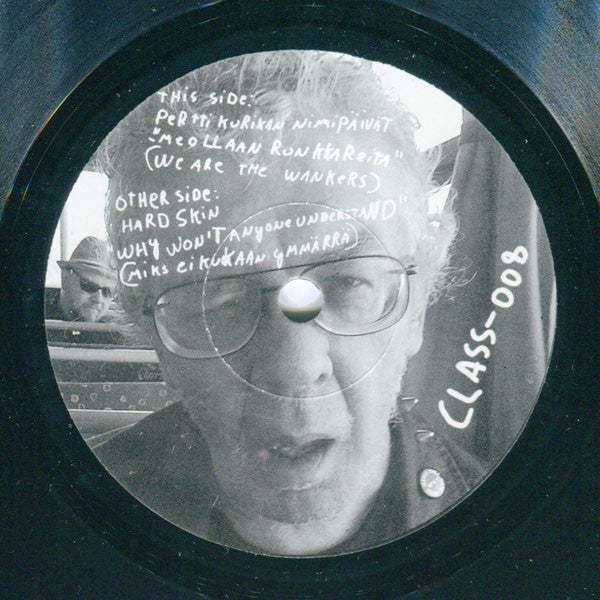 THIS SIDE:
PERTTI KURIKAN NIMIPÄIVÄT
"ME OLLAAN RUNKKAREITA"
(WE ARE THE WANKERS)
OTHER SIDE:
HARD SKIN
"WHY WON'T ANYONE UNDERSTAND"
(MIKS EI KUKAAN YMMÄRRÄ)
CLASS-008